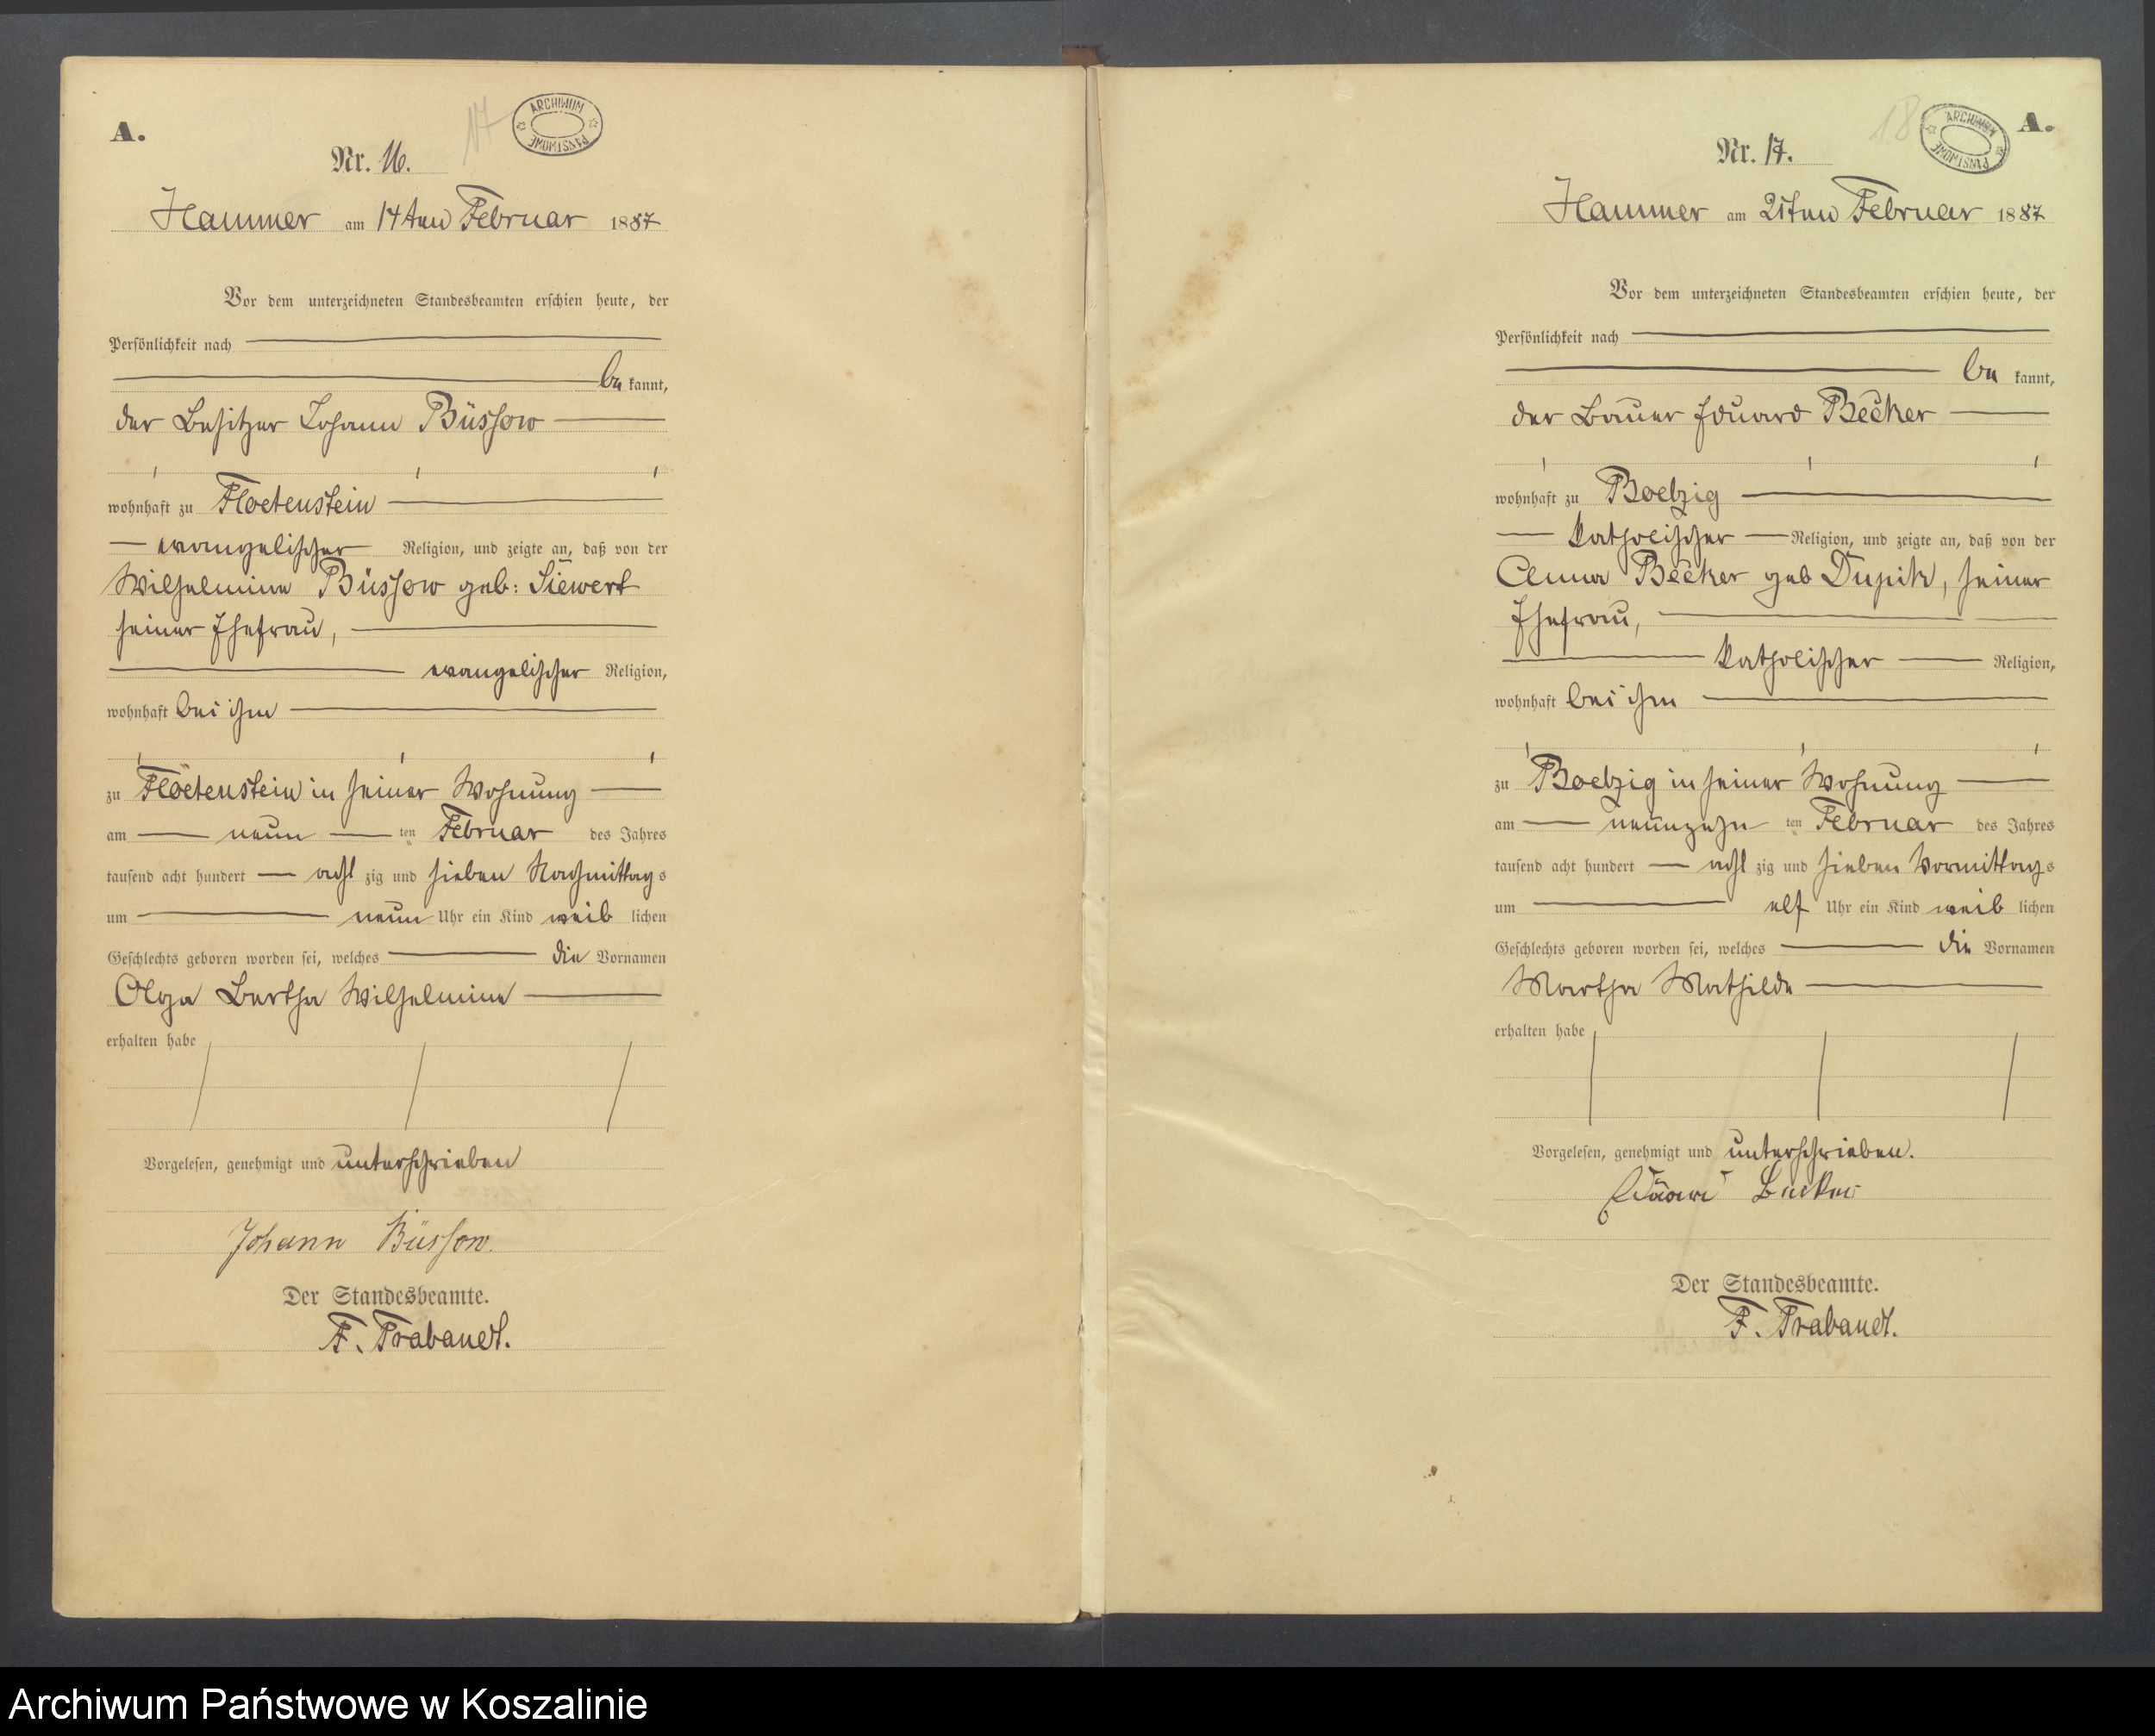 A.
17
ARCHIWUM PAŃSTWOWE
Nr. 16.
Hammer am 14ten Februar 1887
Vor dem unterzeichneten Standesbeamten erschien heute, der
Persönlichkeit nach
be kannt,
der Besitzer Johann Büssow
wohnhaft zu Floetenstein
evangelischer Religion, und zeigte an, daß von der
Wilhelmine Büssow geb: Siewert
seiner Ehefrau,
evangelischer Religion,
wohnhaft bei ihm
zu Floetenstein in seiner Wohnung
am neun ten Februar des Jahres
tausend acht hundert acht zig und sieben Nachmittags
um neun Uhr ein Kind weib lichen
Geschlechts geboren worden sei, welches die Vornamen
Olga Bertha Wilhelmine
erhalten habe
Vorgelesen, genehmigt und unterschrieben
Johann Büssow.
Der Standesbeamte.
F. Trabandt.
18
ARCHIWUM PAŃSTWOWE
A.
Nr. 17.
Hammer am 21ten Februar 1887
Vor dem unterzeichneten Standesbeamten erschien heute, der
Persönlichkeit nach
be kannt,
der Bauer Eduard Becker
wohnhaft zu Boelzig
katholischer Religion, und zeigte an, daß von der
Anna Becker geb Dupik, seiner
Ehefrau,
katholischer Religion,
wohnhaft bei ihm
zu Boelzig in seiner Wohnung
am neunzehn ten Februar des Jahres
tausend acht hundert acht zig und sieben Vormittags
um elf Uhr ein Kind weib lichen
Geschlechts geboren worden sei, welches die Vornamen
Martha Mathilde
erhalten habe
Vorgelesen, genehmigt und unterschrieben.
Eduard Becker
Der Standesbeamte.
F. Trabandt.
Archiwum Państwowe w Koszalinie